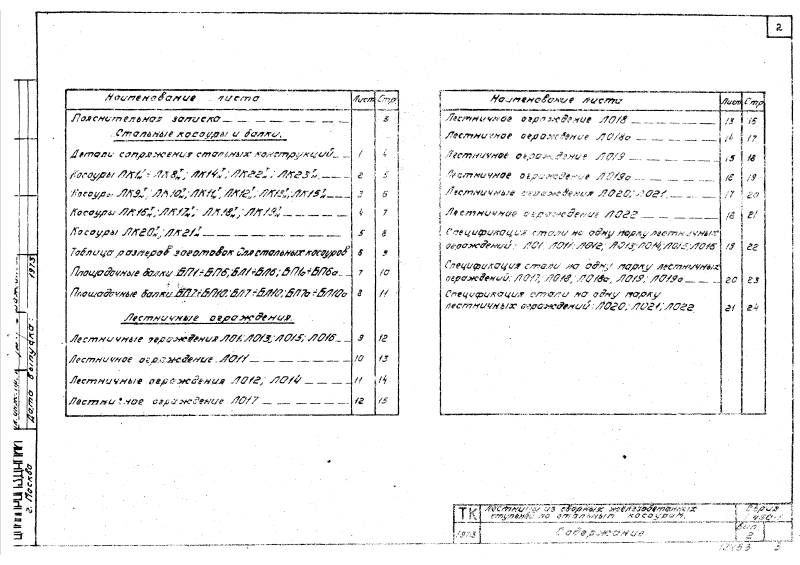 2
Наименование листа Лист Стр
Пояснительная записка 3
Стальные косоуры и балки.
Детали сопряжения стальных конструкций 1 4
Косоуры 2 5
Косоуры 3 6
Косоуры 4 7
Косоуры 5 8
Таблица размеров заготовок для стальных косоуров 6 9
Площадочные балки БП1÷БП6; БЛ1÷БЛ6; БП1а÷БП6а 7 10
Площадочные балки БП7÷БП10; БЛ7÷БЛ10; БП7а÷БЛ10а 8 11
Лестничные ограждения.
Лестничные ограждения ЛО1; ЛО13; ЛО15; ЛО16 9 12
Лестничное ограждение ЛО11 10 13
Лестничные ограждения ЛО12; ЛО14 11 14
Лестничное ограждение ЛО17 12 15
Наименование листа Лист Стр
Лестничное ограждение ЛО18 13 16
Лестничное ограждение ЛО18а 14 17
Лестничное ограждение ЛО19 15 18
Лестничное ограждение ЛО19а 16 19
Лестничные ограждения ЛО20; ЛО21 17 20
Лестничное ограждение ЛО22 18 21
Спецификация стали на одну марку лестничных
ограждений: ЛО1, ЛО11; ЛО12; ЛО13; ЛО14; ЛО15; ЛО16 19 22
Спецификация стали на одну марку лестничных
ограждений: ЛО17, ЛО18, ЛО18а, ЛО19; ЛО19а 20 23
Спецификация стали на одну марку
лестничных ограждений: ЛО20; ЛО21; ЛО22 21 24
Дата выпуска: 1973
г. Москва
ТК Лестницы из сборных железобетонных
ступеней по стальным косоурам. Серия
1973 Содержание Вып
2
3